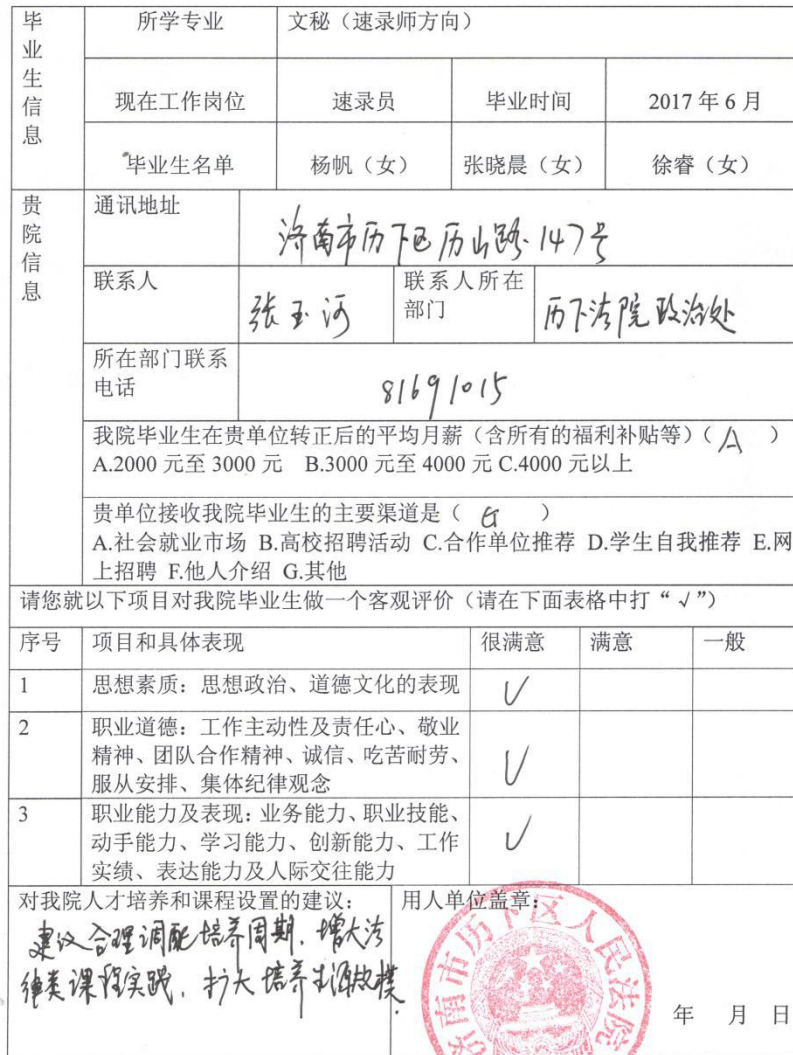 毕业生信息
所学专业 文秘（速录师方向）
现在工作岗位 速录员 毕业时间 2017 年 6 月
毕业生名单 杨帆（女） 张晓晨（女） 徐睿（女）
贵院信息
通讯地址 济南市历下区历山路147号
联系人 张玉河 联系人所在
部门 历下法院政治处
所在部门联系
电话 81691015
我院毕业生在贵单位转正后的平均月薪（含所有的福利补贴等）（ A ）
A.2000 元至 3000 元 B.3000 元至 4000 元 C.4000 元以上
贵单位接收我院毕业生的主要渠道是（ G ）
A.社会就业市场 B.高校招聘活动 C.合作单位推荐 D.学生自我推荐 E.网
上招聘 F.他人介绍 G.其他
请您就以下项目对我院毕业生做一个客观评价（请在下面表格中打“√”）
序号 项目和具体表现 很满意 满意 一般
1 思想素质：思想政治、道德文化的表现 √
2 职业道德：工作主动性及责任心、敬业
精神、团队合作精神、诚信、吃苦耐劳、
服从安排、集体纪律观念 √
3 职业能力及表现：业务能力、职业技能、
动手能力、学习能力、创新能力、工作
实绩、表达能力及人际交往能力 √
对我院人才培养和课程设置的建议：
建议合理调配培养周期，增大法
律类课程实践，扩大培养生源规模.
用人单位盖章：
济南市历下区人民法院
年 月 日